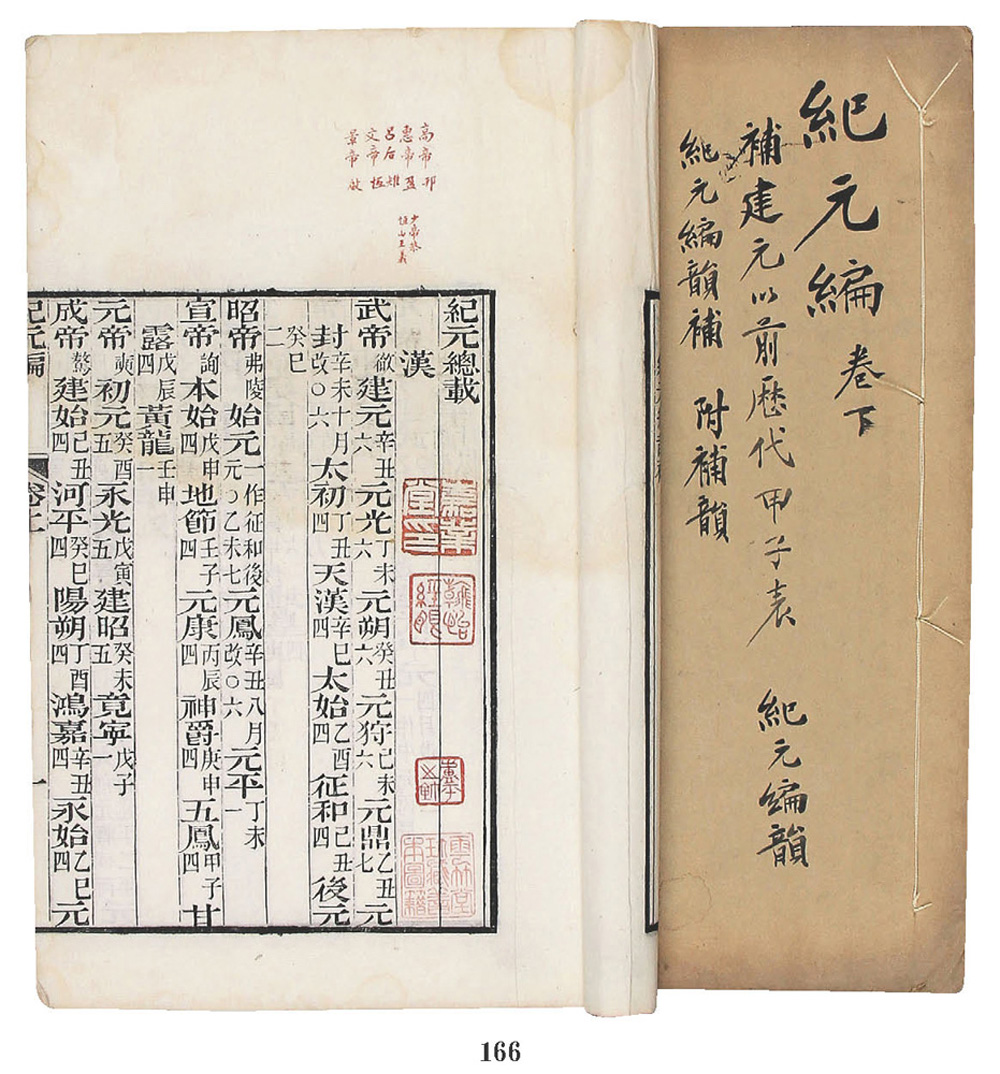 紀元編 卷下
補建元以前歷代甲子表 紀元編韻
紀元編韻補 附補韻
高帝邦
惠帝盈
呂后雉
文帝恆
景帝啟
少帝恭
恆山王義
紀元總載
漢
武帝徹建元六辛丑元光六丁未元朔六癸丑元狩六己未元鼎七乙丑元
封辛未十月改〇六太初四丁丑天漢四辛巳太始四乙酉征和四己丑後元
二癸巳
昭帝弗陵始元一作征和後元〇乙未七元鳳辛丑八月改〇六元平一丁未
宣帝詢本始四戊申地節四壬子元康四丙辰神爵四庚申五鳳四甲子甘
露四戊辰黃龍一壬申
元帝奭初元五癸酉永光五戊寅建昭五癸未竟寧一戊子
成帝驁建始四己丑河平四癸巳陽朔四丁酉鴻嘉四辛丑永始四乙巳元
紀元編 卷上 一
嘉業堂印
166